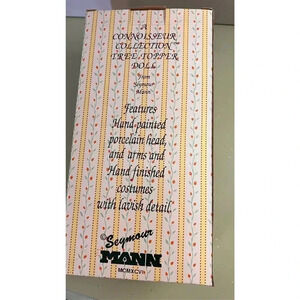 A
CONNOISSEUR
COLLECTION™
TREE TOPPER
DOLL
From
Seymour
Mann
Features
Hand-painted
porcelain head,
and arms and
Hand finished
costumes
with lavish detail.
©Seymour
MANN
MCMXCVII